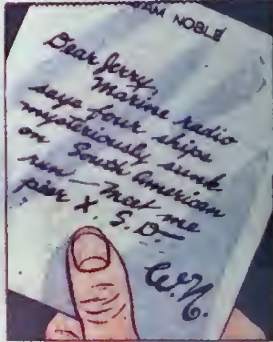 AM NOBLE
Dear Jerry,
Marine radio
says four ships
mysteriously sunk
on South American
run — Meet me
pier X. S. D. —
W.N.